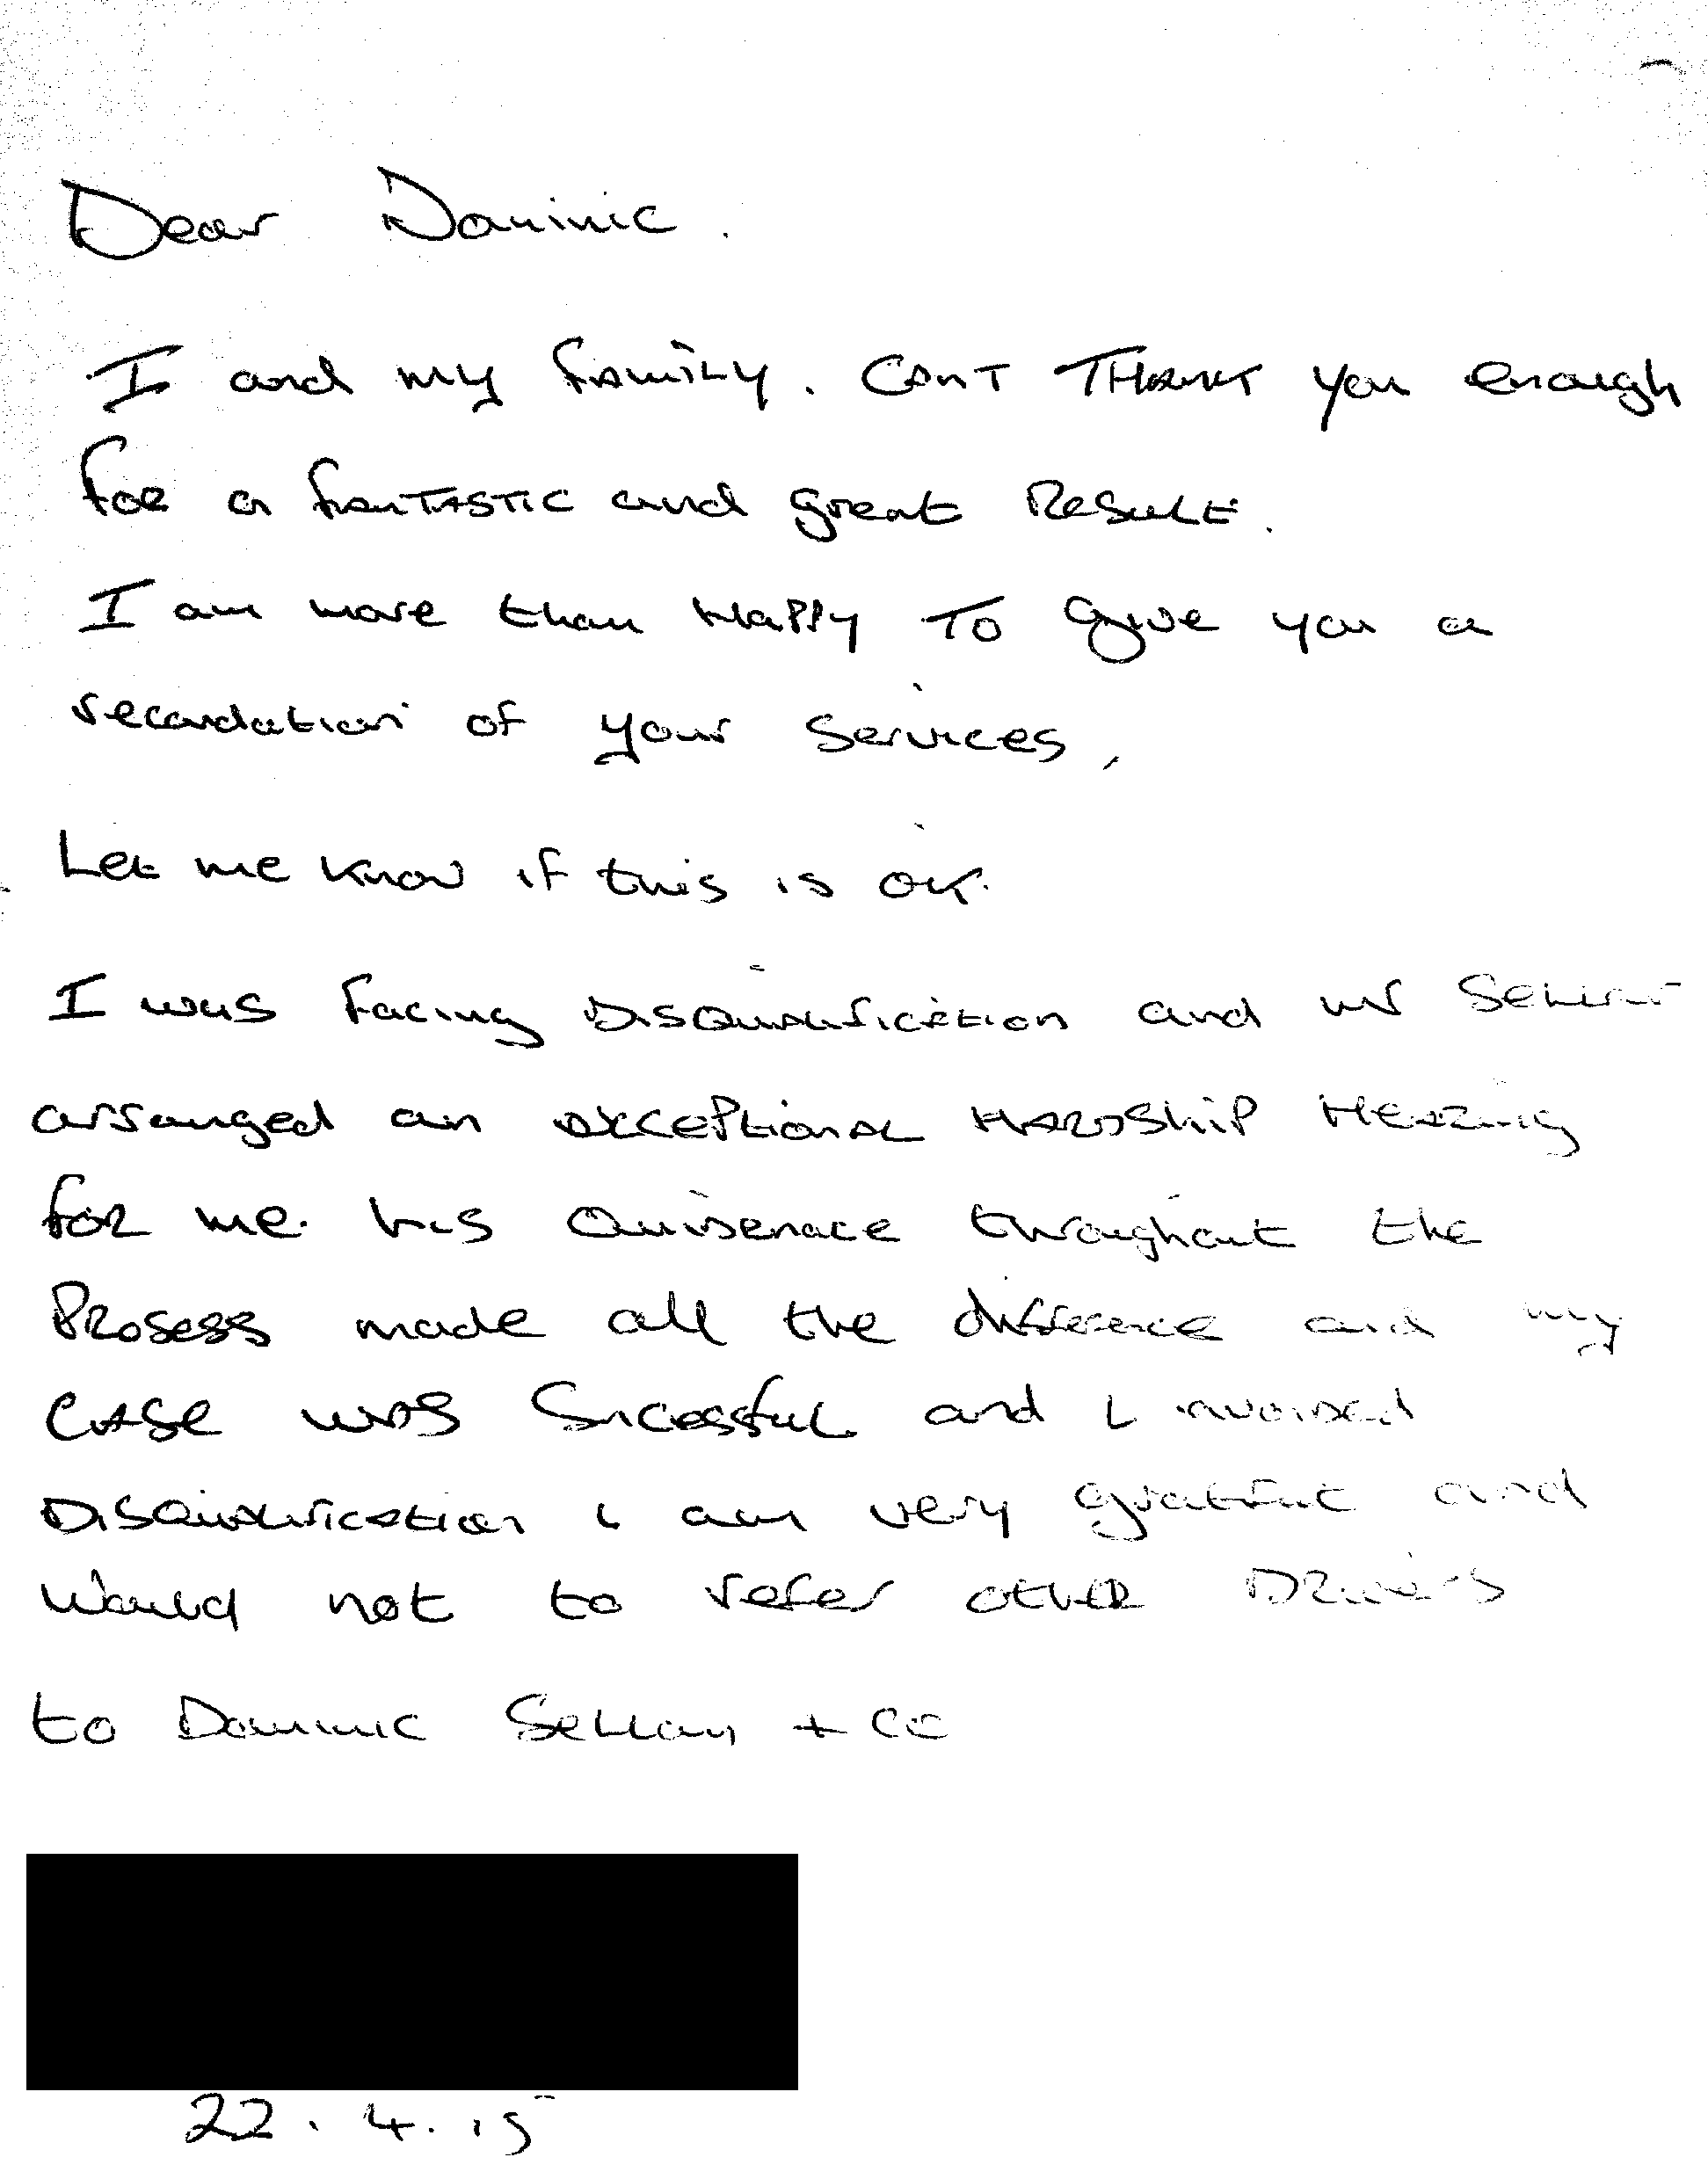 Dear Dominic.
I and my family. Cant THANK you enough
for a fanTASTIC and great Result.
I am more than Happy To give you a
recondation of your services,
Let me know if this is ok.
I was facing Disqualification and mr
arranged an exceptional Hardship Hearing
for me. his throughout the
Prosess made all the difference and my
case was Sucessful and I avoided
Disqualification i am very gratful and
Would not to refer other Drivers
to Dominic Sellian + co
22.4.15